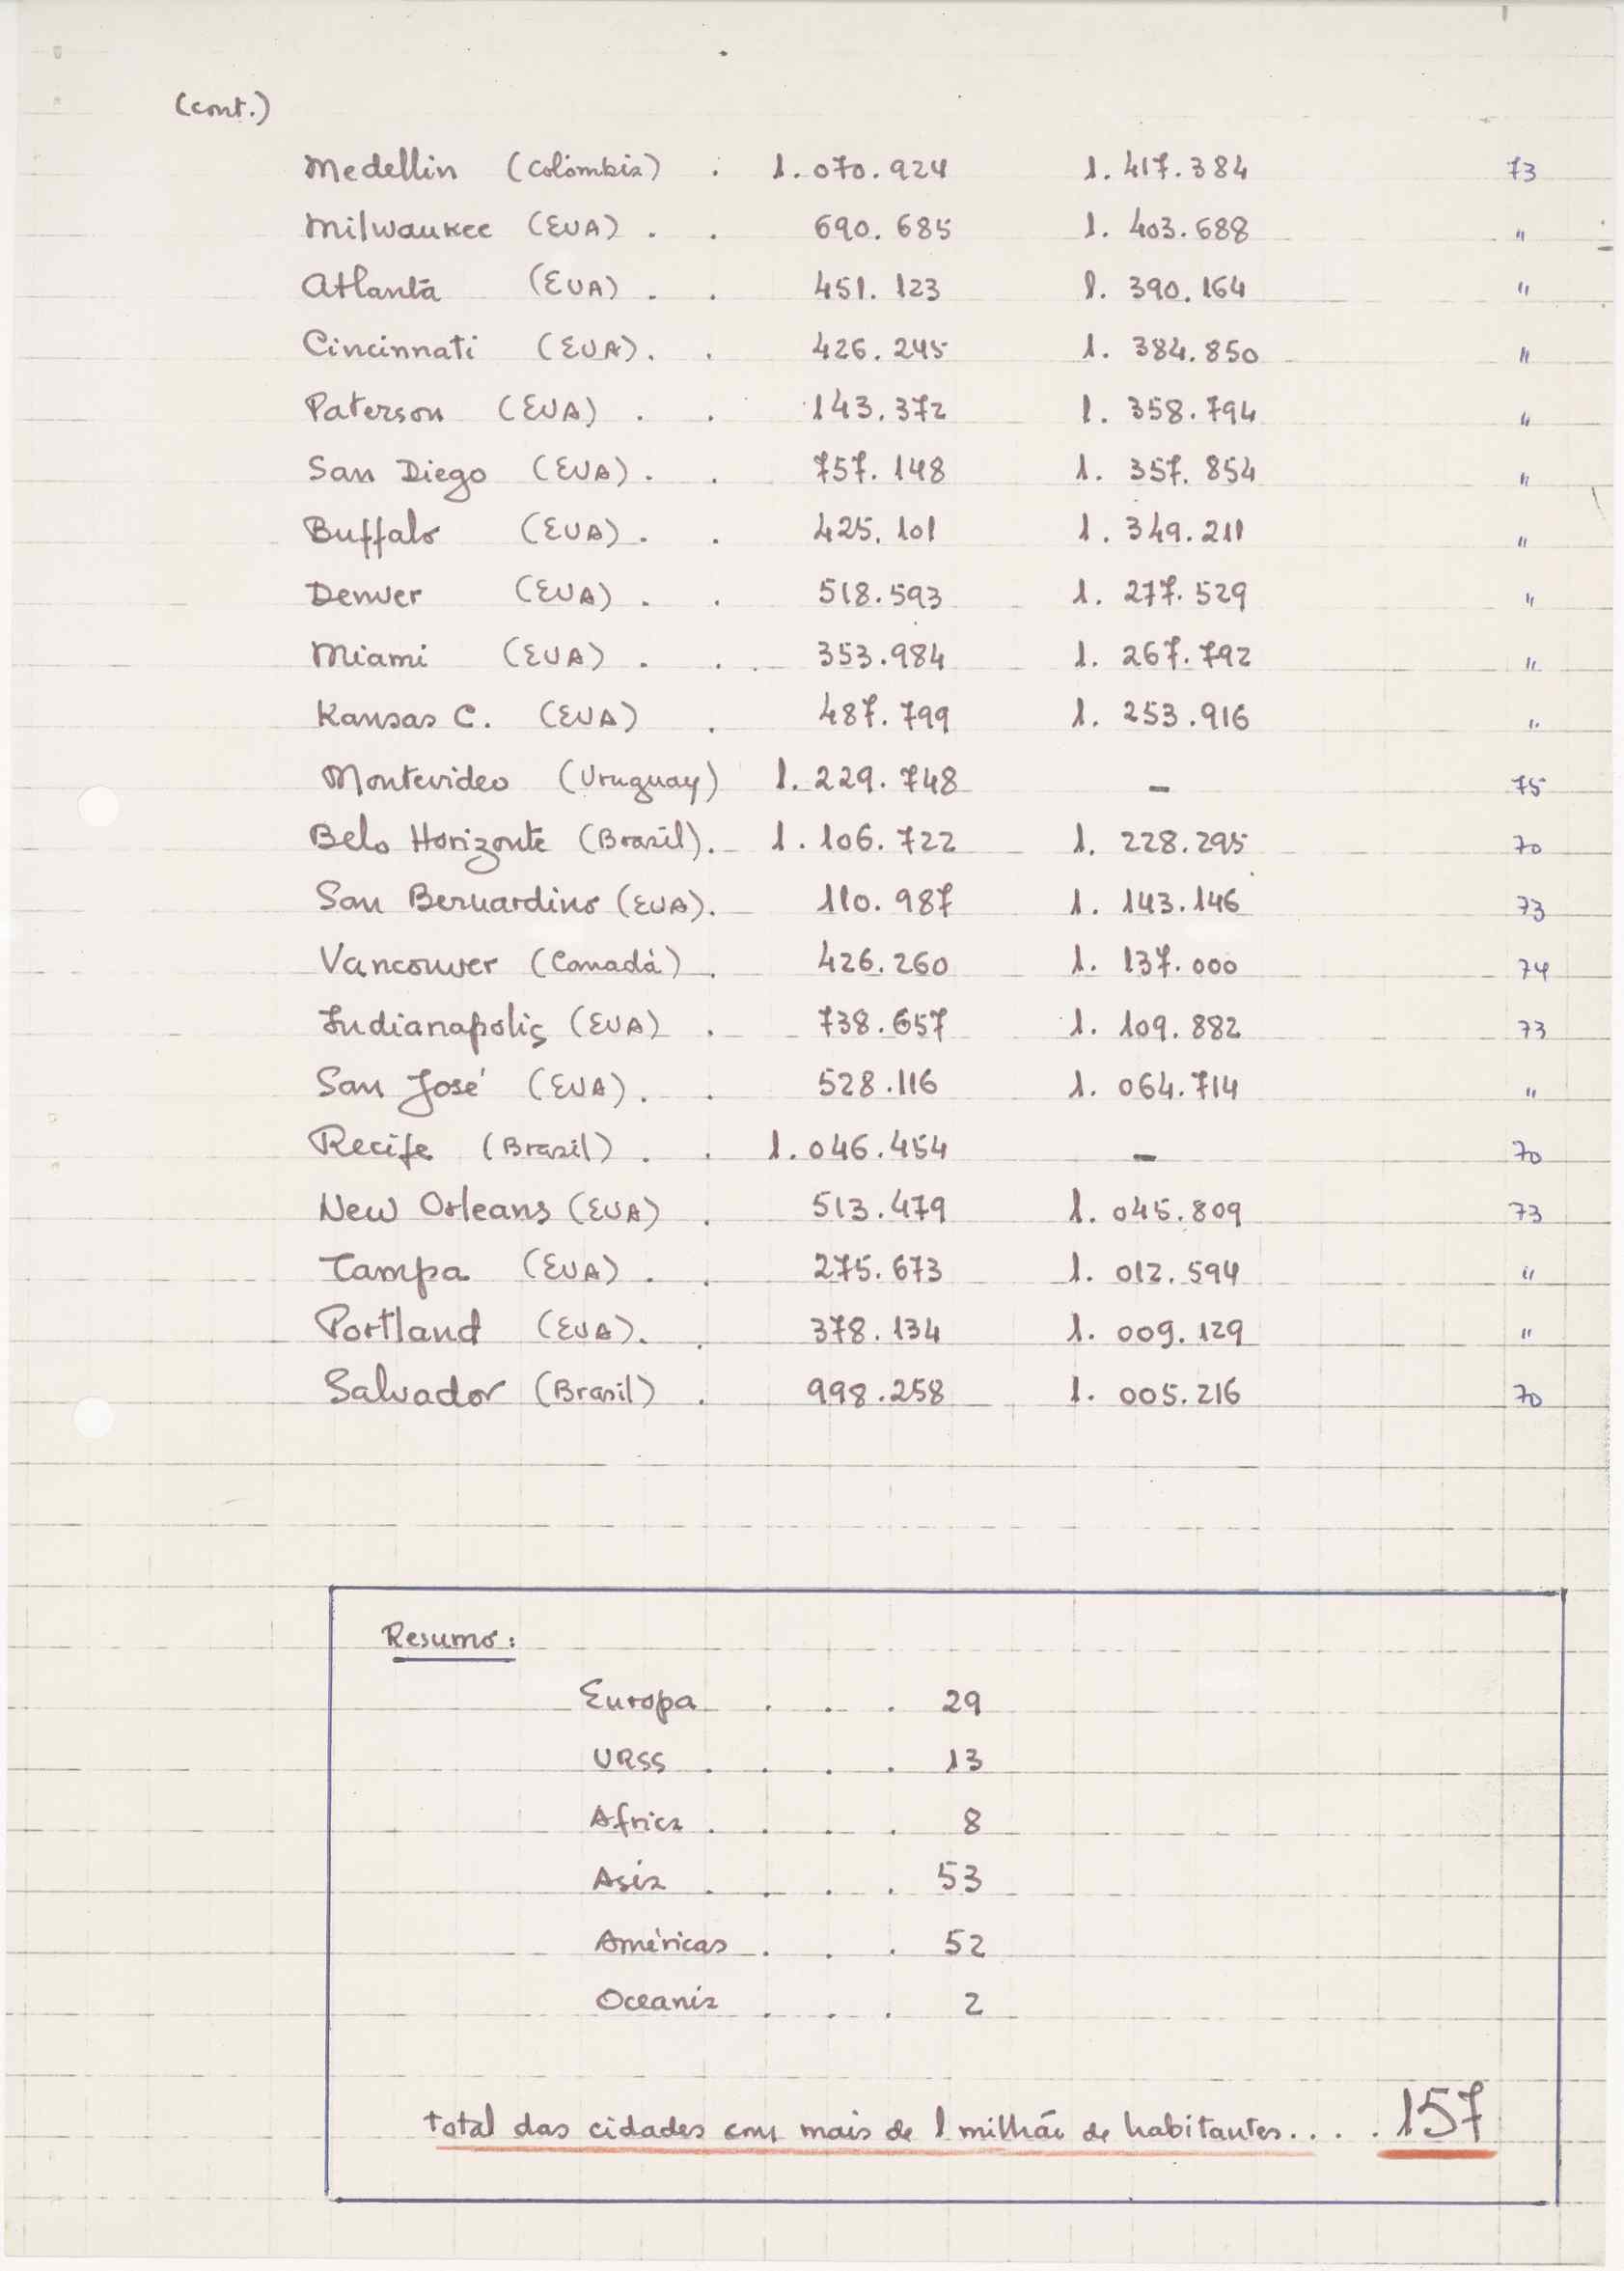 (cont.)
Medellin (Colômbia) . 1.070.924 1.417.384 73
Milwaukee (EUA) . . 690.685 1.403.688 "
Atlanta (EUA) . . 451.123 1.390.164 "
Cincinnati (EUA) . . 426.245 1.384.850 "
Paterson (EUA) . . 143.372 1.358.794 "
San Diego (EUA) . . 757.148 1.357.854 "
Buffalo (EUA) . . 425.101 1.349.211 "
Denver (EUA) . . 518.593 1.277.529 "
Miami (EUA) . . 353.984 1.267.792 "
Kansas C. (EUA) . 487.799 1.253.916 "
Montevideo (Uruguay) 1.229.748 - 75
Belo Horizonte (Brasil) . 1.106.722 1.228.295 70
San Bernardino (EUA) . 110.987 1.143.146 73
Vancouver (Canadá) . 426.260 1.137.000 74
Indianapolis (EUA) . 738.657 1.109.882 73
San José (EUA) . . 528.116 1.064.714 "
Recife (Brasil) . . 1.046.454 - 70
New Orleans (EUA) . 513.479 1.045.809 73
Tampa (EUA) . . 275.673 1.012.594 "
Portland (EUA) . . 378.134 1.009.129 "
Salvador (Brasil) . 998.258 1.005.216 70
Resumo:
Europa . . . 29
URSS . . . . 13
Africa . . . . 8
Asia . . . . 53
Américas . . . 52
Oceania . . . 2
total das cidades com mais de 1 milhão de habitantes . . . . 157